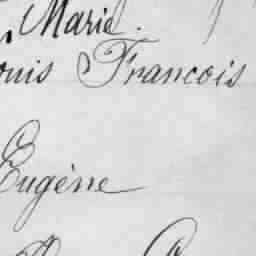 Marie.
ouis François
Eugène